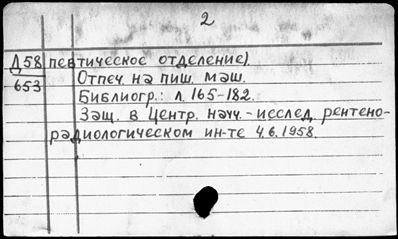 2
Д58 певтическое отделение).
653 Отпеч. на пиш. маш.
Библиогр.: л. 165-182.
Защ. в Центр. науч.-исслед. рентено-
радиологическом ин-те 4.6.1958.